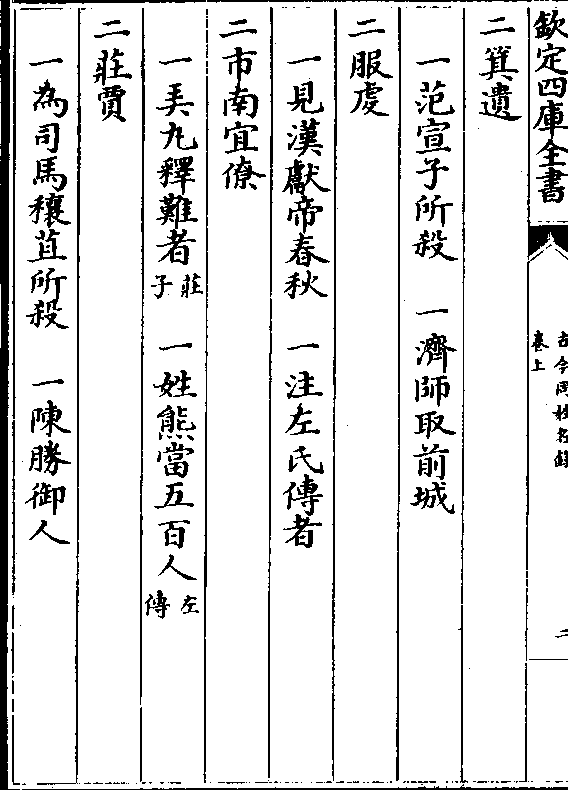 欽定四庫全書
古今同姓名錄
卷上
二
二箕遺
一范宣子所殺　一濟師取前城
二服虔
一見漢獻帝春秋　一注左氏傳者
二市南宜僚
一弄丸釋難者莊子　一姓熊當五百人左傳
二莊賈
一為司馬穰苴所殺　一陳勝御人